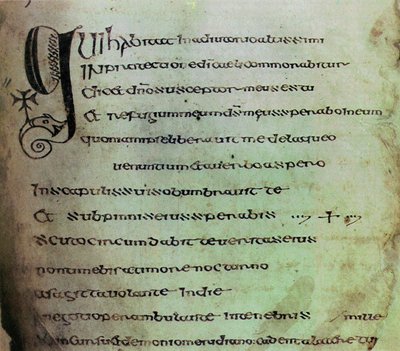 Quihabitat Inadiutorioaltissimi
INprotectioni dicaelicommorabitur
dicet dnosusceptormeusestu
Et refugiummeumdsmeussperaboineum
quoniamipseliberauit me delaqueo
uenantiumetauerboaspero
Inscapulissuisobumbrauit te
Et subpinniseiussperabis
scutocircumdabitteueritaseius
nontimebisatimorenocturno
asagittauolante Indie
negotioperambulante Intenebris mille
abincursuetdemoniomeridiano cadentalatere